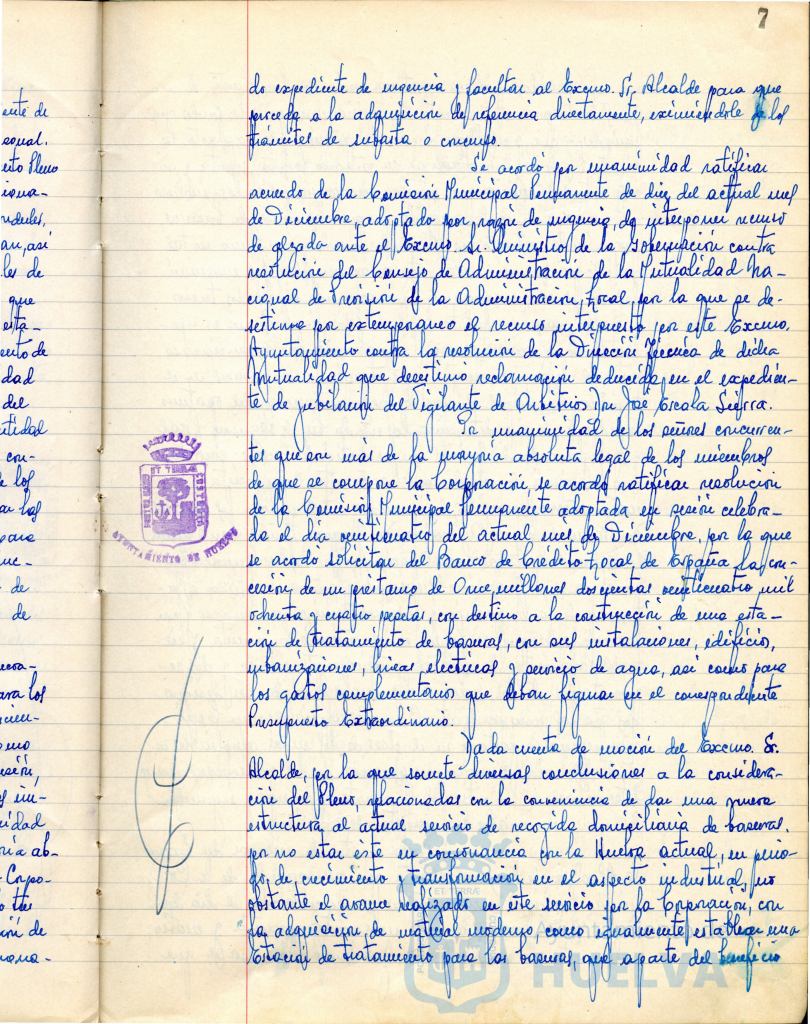 7
do expediente de urgencia y facultar al Excmo. Sr. Alcalde para que
proceda a la adquisición de referencia directamente, eximiéndole de los
trámites de subasta o concurso.
Se acordó por unanimidad ratificar
acuerdo de la Comisión Municipal Permanente de del actual mes
de Diciembre, adoptado por razón de urgencia, de interponer recurso
de alzada ante el Excmo. Sr. Ministro de la Gobernación contra
resolución del Consejo de Administración de la Mutualidad Na-
cional de Previsión de la Administración Local, por la que se de-
sestima por extemporaneo el recurso interpuesto por este Excmo.
Ayuntamiento contra la resolución de la Dirección Técnica de dicha
Mutualidad que desestimó reclamación deducida en el expedien-
te de jubilación del Vigilante de Arbitrios Don José Escala Sierra.
Por unanimidad de los señores concurren-
tes que son más de la mayoría absoluta legal de los miembros
de que se compone la Corporación, se acordó ratificar resolución
de la Comisión Municipal Permanente adoptada en sesión celebra-
da el día veinticuatro del actual mes de Diciembre, por la que
se acordó solicitar del Banco de Crédito Local de España la con-
cesión de un préstamo de Once millones doscientas veinticuatro mil
ochenta y cuatro pesetas, con destino a la construcción de una esta-
ción de tratamiento de basuras, con sus instalaciones, edificio,
urbanizaciones, líneas electricas y servicio de agua, así como para
los gastos complementarios que deban figurar en el correspondiente
Presupuesto Extraordinario.
Dada cuenta de moción del Excmo. Sr.
Alcalde, por la que somete diversas conclusiones a la considera-
ción del Pleno, relacionadas con la conveniencia de dar una nueva
estructura al actual servicio de recogida domiciliaria de basuras,
por no estar éste en consonancia con la Huelva actual, en perio-
do de crecimiento y transformación en el aspecto industrial, no
obstante el avance realizado en este servicio por la Corporación, con
la adquisición de material moderno, como igualmente establecer una
Estación de tratamiento para las basuras, que aparte del beneficio
AYUNTAMIENTO DE HUELVA
HUELVA